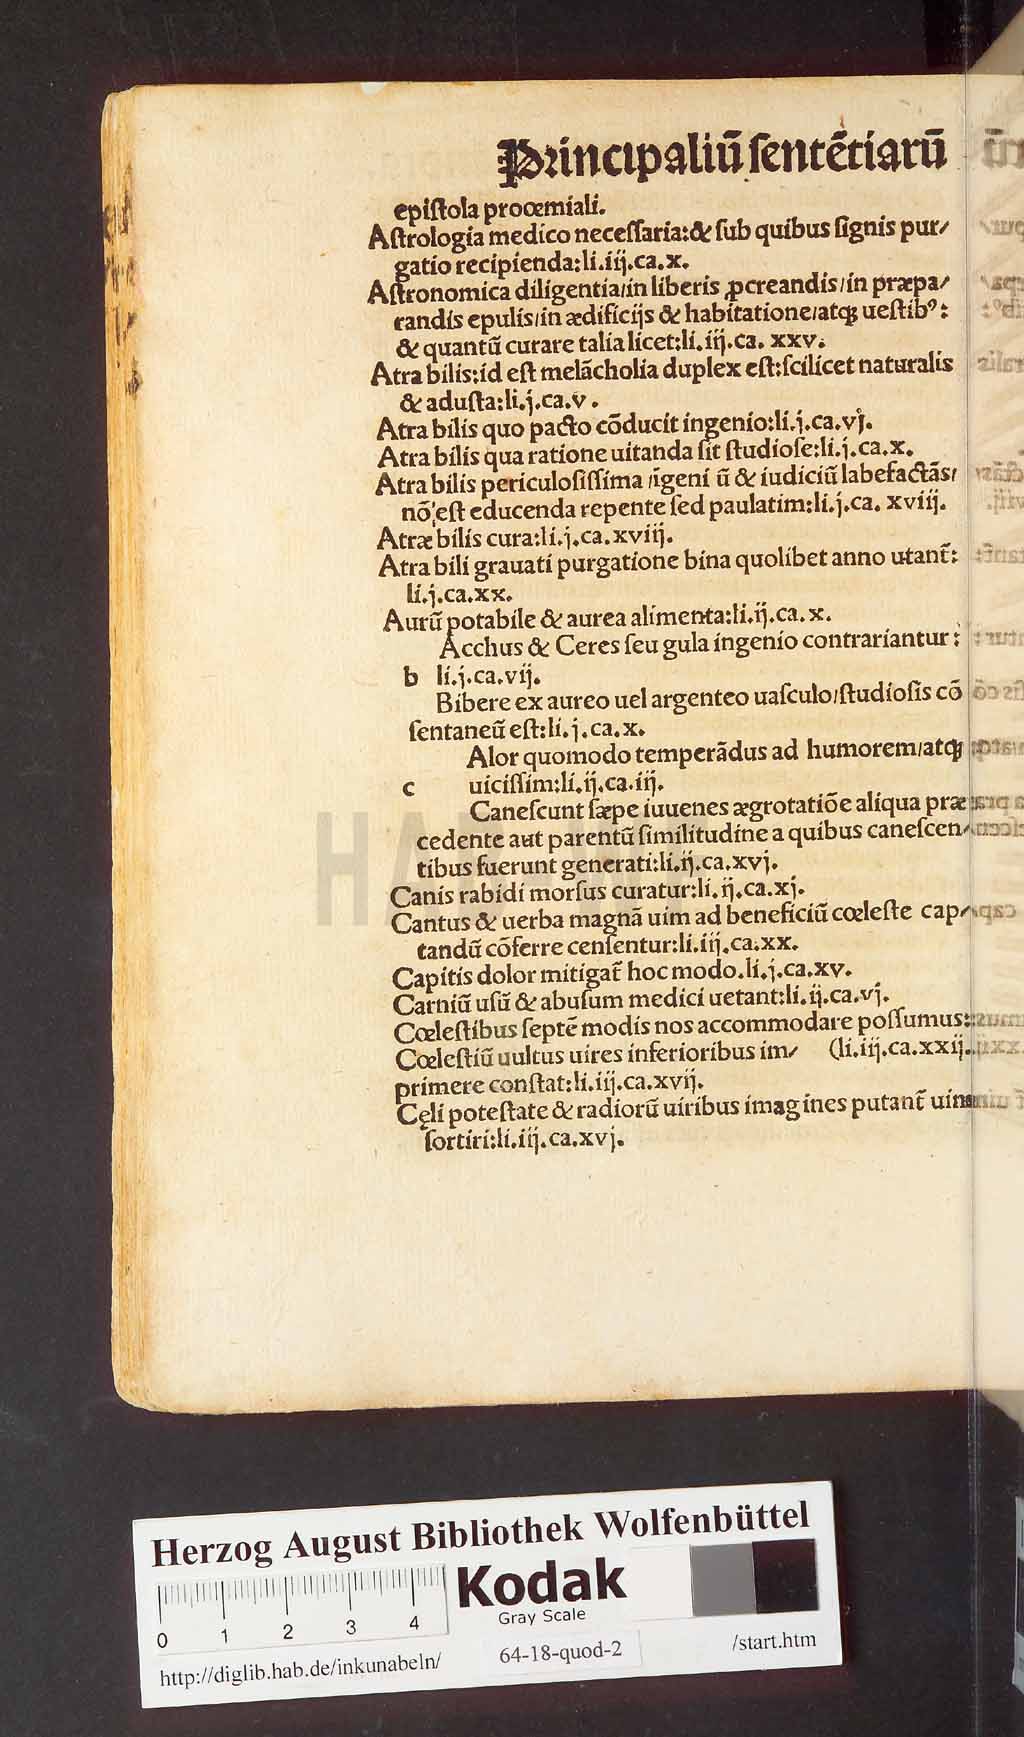 Principaliū ſentētiarū
epiſtola procœmiali.
Aſtrologia medico neceſſaria:& ſub quibus ſignis pur⸗
gatio recipienda:li.iij.ca.x.
Aſtronomica diligentia/in liberis ꝓcreandis/in præpa⸗
randis epulis/in ædificijs & habitatione/atqꝫ ueſtibꝰ:
& quantū curare talia licet:li.iij.ca. xxv.
Atra bilis:id eſt melācholia duplex eſt:ſcilicet naturalis
& aduſta:li.j.ca.v .
Atra bilis quo pacto cōducit ingenio:li.j.ca.vj.
Atra bilis qua ratione uitanda ſit ſtudioſe:li.j.ca.x.
Atra bilis periculoſiſſima /īgeni ū & iudiciū labefactās/
nō eſt educenda repente ſed paulatim:li.j.ca. xviij.
Atræ bilis cura:li.j.ca.xviij.
Atra bili grauati purgatione bina quolibet anno utant̃:
li.j.ca.xx.
Aurū potabile & aurea alimenta:li.ij.ca.x.
Acchus & Ceres ſeu gula ingenio contrariantur:
b li.j.ca.vij.
Bibere ex aureo uel argenteo uaſculo/ſtudioſis cō
ſentaneū eſt:li.j.ca.x.
Alor quomodo temperādus ad humorem/atqꝫ
c uiciſſim:li.ij.ca.iij.
Caneſcunt ſæpe iuuenes ægrotatiōe aliqua præ
cedente aut parentū ſimilitudine a quibus caneſcen⸗
tibus fuerunt generati:li.ij.ca.xvj.
Canis rabidi morſus curatur:li.ij.ca.xj.
Cantus & uerba magnā uim ad beneficiū cœleſte cap⸗
tandū cōferre cenſentur:li.iij.ca.xx.
Capitis dolor mitigat̃ hoc modo.li.j.ca.xv.
Carniū uſū & abuſum medici uetant:li.ij.ca.vj.
Cœleſtibus ſeptē modis nos accommodare poſſumus:
Cœleſtiū uultus uires inferioribus im⸗ (li.iij.ca.xxij.
primere conſtat:li.iij.ca.xvij.
Cęli poteſtate & radiorū uiribus imagines putant̃ uim
ſortiri:li.iij.ca.xvj.
HAB
Herzog August Bibliothek Wolfenbüttel
Kodak
Gray Scale
0 1 2 3 4
http://diglib.hab.de/inkunabeln/ 64-18-quod-2 /start.htm